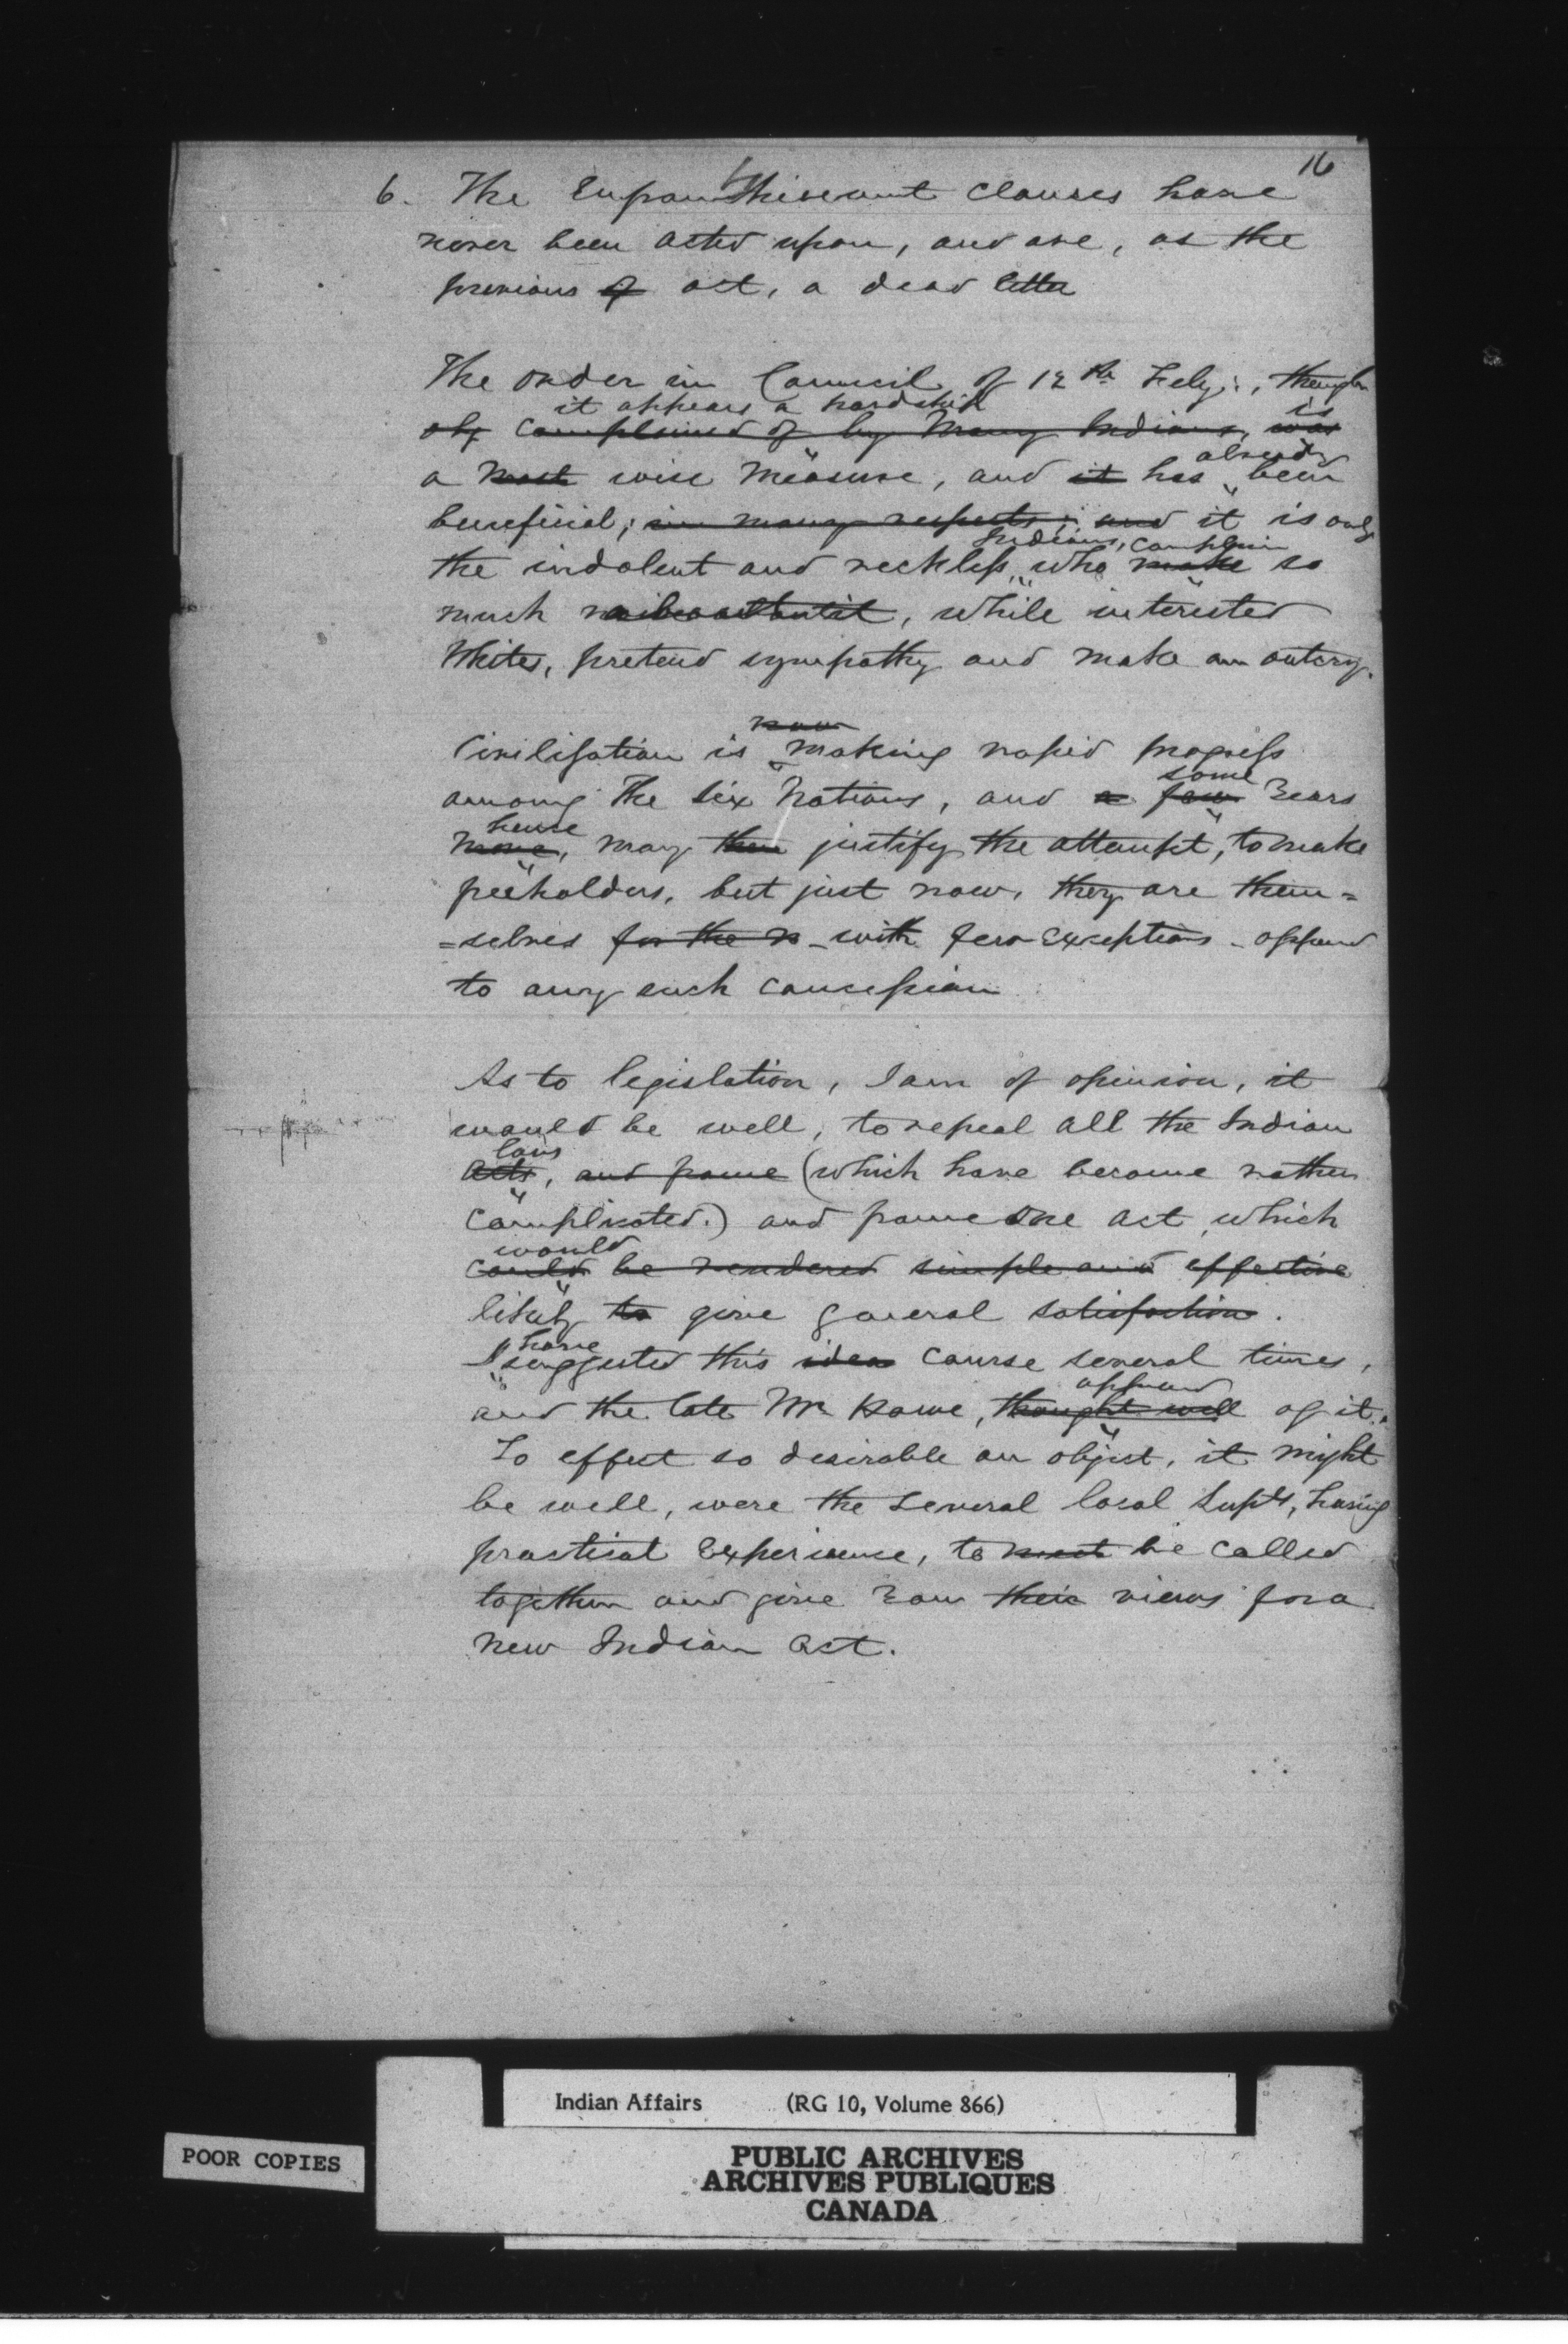 16
6. The Enfranchisement clauses have
never been acted upon, and are, as the
previous of act, a dead letter
The order in Council of 12th Feby:, though
it appears a hardship is
obj complained of by many Indians, was
already
a most wise measure, and it has been
beneficial; in many respects; and it is only
Indians, complain
the indolent and reckless who make so
much, while interested
Whites, pretend sympathy and make an outcry.
now
Civilisation is making rapid progress
some
among the Six Nations, and a few years
hence
more, may then justify the attempt, to make
freeholders, but just now, they are them=
=selves for the n - with few exceptions - opposed
to any such concession
As to legislation, I am of opinion, it
would be well, to repeal all the Indian
laws
acts, and frame (which have become rather
complicated.) and frame one act which
would
could be rendered simple and effective
likely to give general satisfaction.
have
I suggested this idea course several times,
approved
and the late Mr Howe, thought well of it.
To effect so desirable an object, it might
be well, were the several local Supts, having
practical experience, to meet be called
together and give you their views for a
new Indian act.
Indian Affairs (RG 10, Volume 866)
POOR COPIES
PUBLIC ARCHIVES
ARCHIVES PUBLIQUES
CANADA